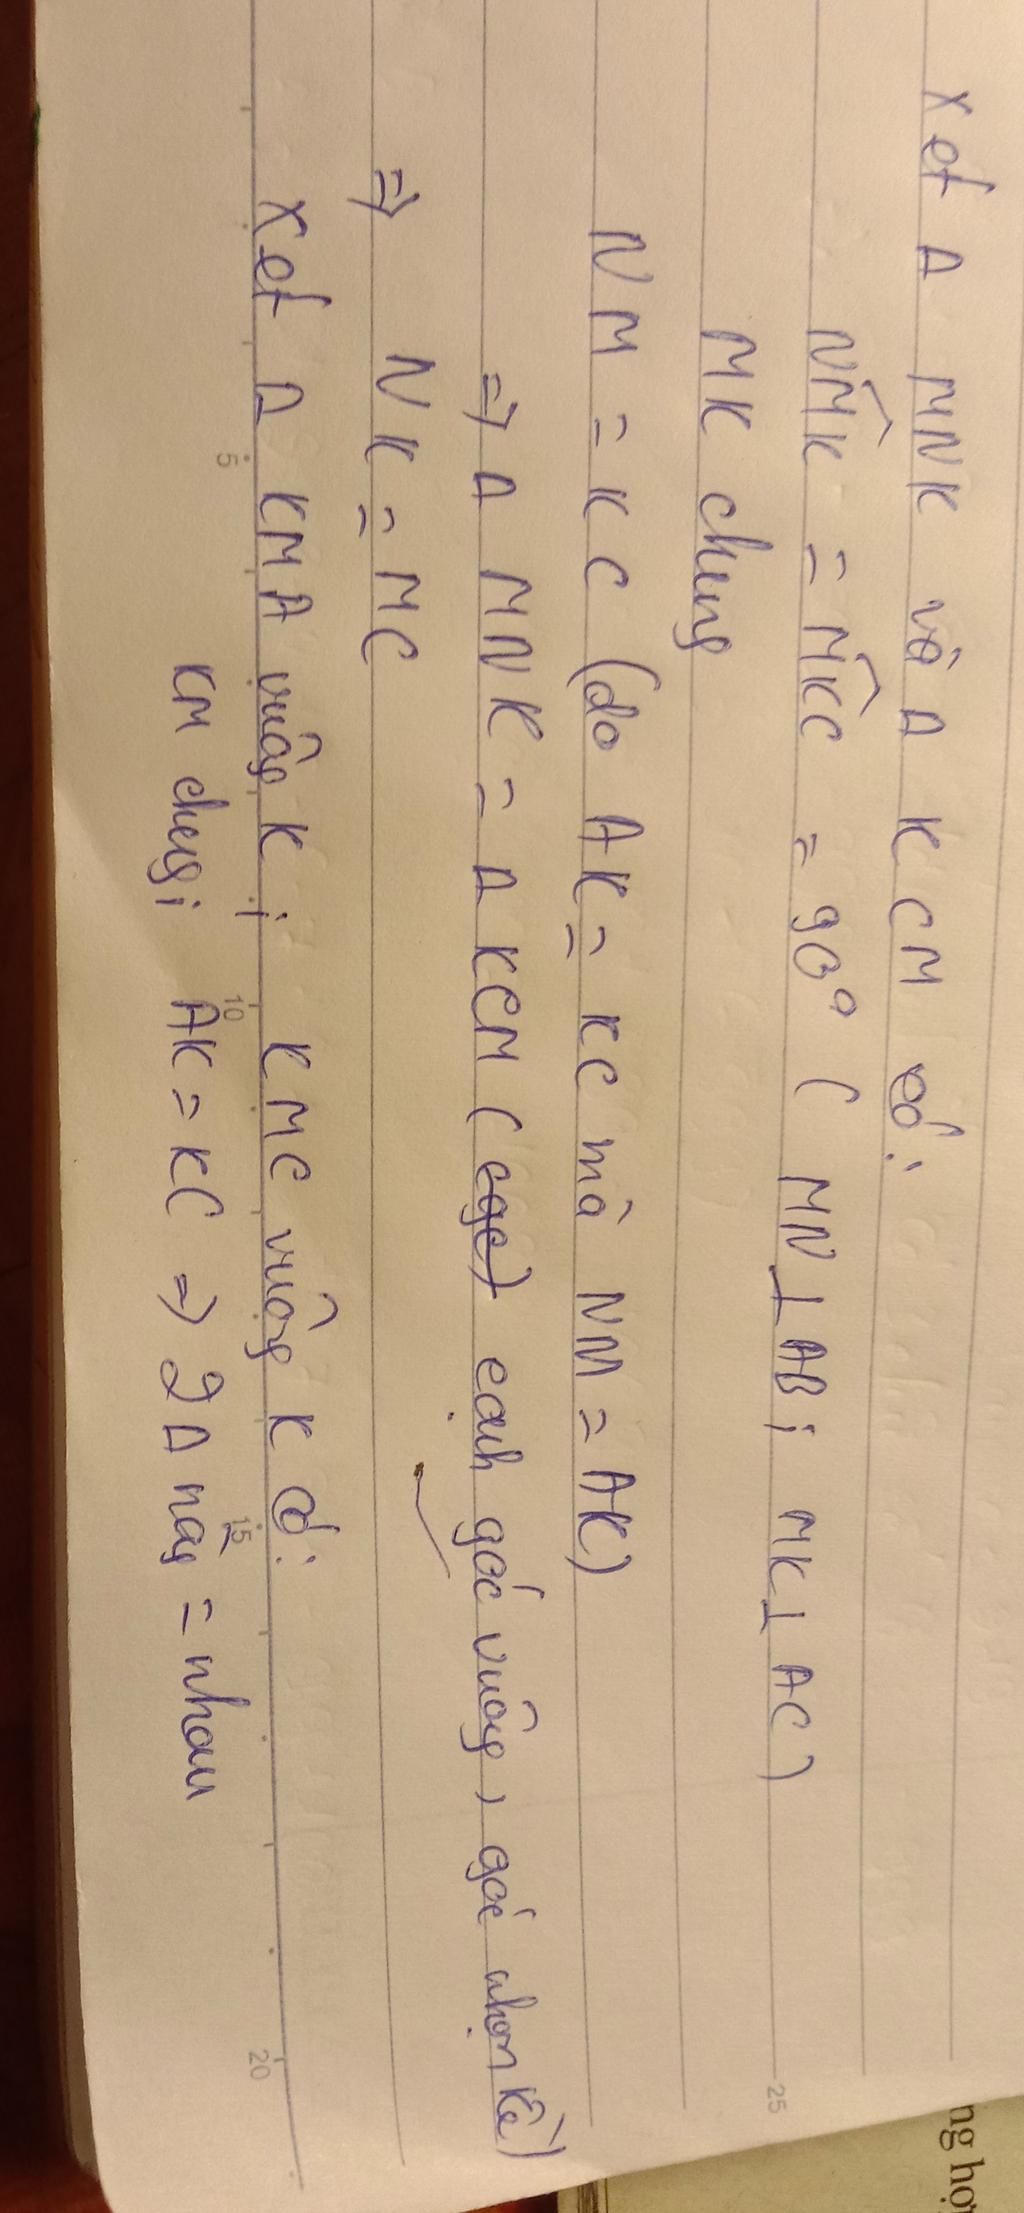 Xét Δ MNK và Δ KCM có:
NMK = MKC = 90° ( MN ⊥ AB; MK ⊥ AC )
MK chung
NM = KC (do AK = KC mà NM = AK)
=> Δ MNK = Δ KCM ( cgc) cạnh góc vuông, góc nhọn kề)
=> NK = MC
Xét Δ KMA vuông K; KMC vuông K có:
KM chung; AK = KC => 2 Δ này = nhau
5
10
15
20
25
ng hợ